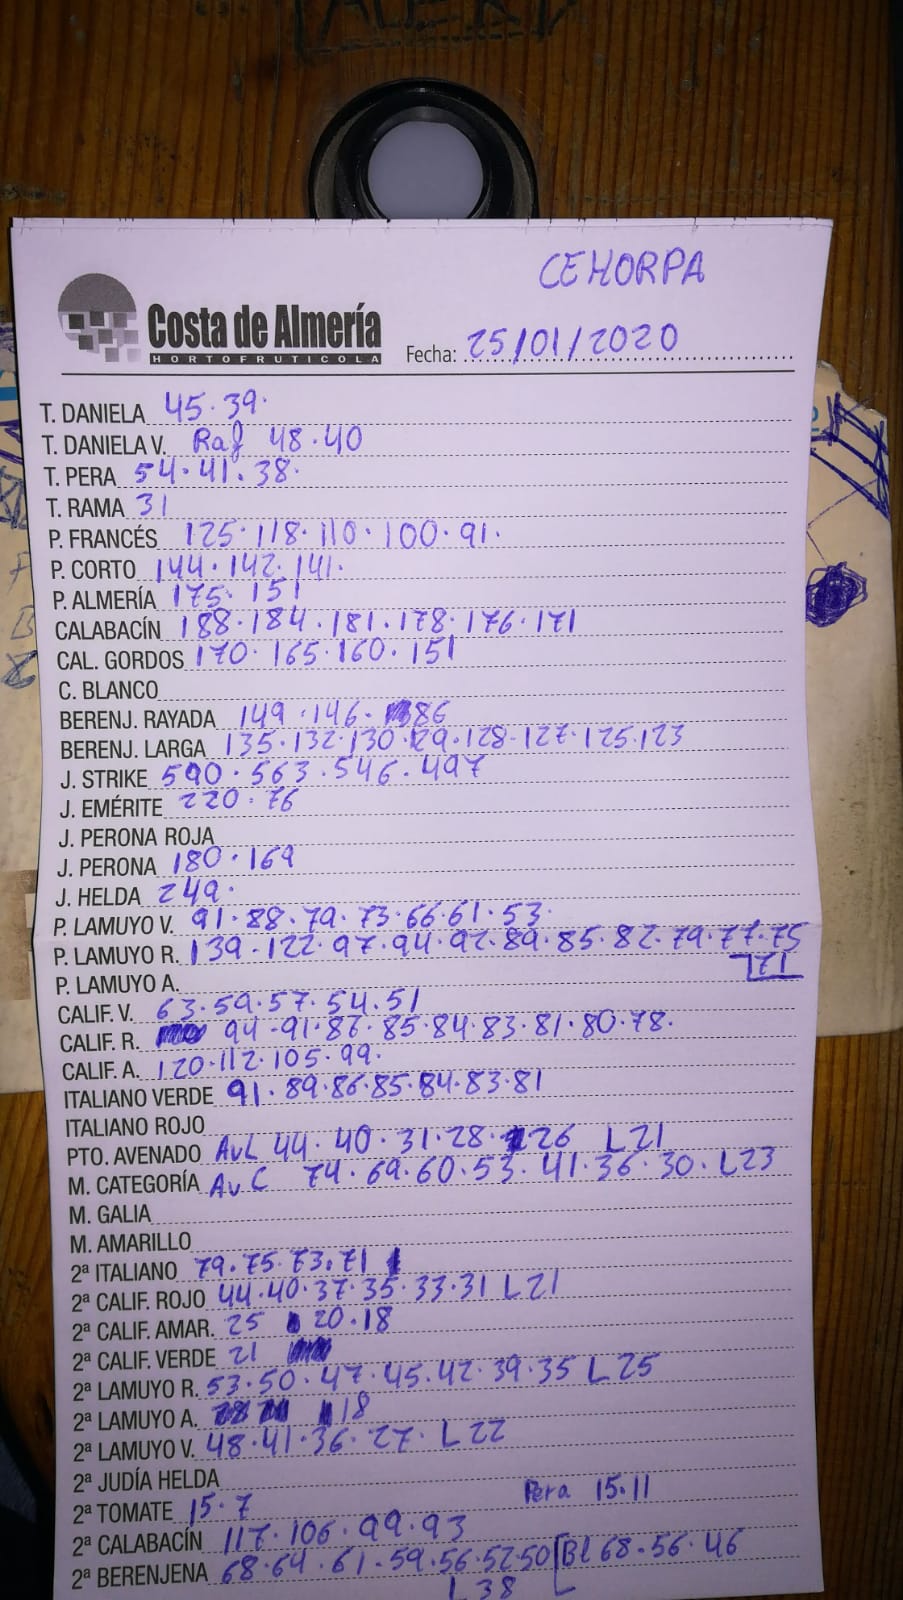 CEHORPA
Costa de Almería
HORTOFRUTICOLA
Fecha: 25/01/2020
T. DANIELA 45.39.
T. DANIELA V. Raf 48.40
T. PERA 54.41.38.
T. RAMA 31
P. FRANCÉS 125.118.110.100.91.
P. CORTO 144.142.141.
P. ALMERÍA 175.151
CALABACÍN 188.184.181.178.176.171
CAL. GORDOS 170.165.160.151
C. BLANCO
BERENJ. RAYADA 149.146.86
BERENJ. LARGA 135.132.130.129.128.127.125.123
J. STRIKE 590.563.546.497
J. EMÉRITE 220.76
J. PERONA ROJA
J. PERONA 180.169
J. HELDA 249.
P. LAMUYO V. 91.88.79.73.66.61.53.
P. LAMUYO R. 139.122.97.94.92.89.85.82.79.77.75
71
P. LAMUYO A.
CALIF. V. 63.59.57.54.51
CALIF. R. 94.91.87.85.84.83.81.80.78.
CALIF. A. 120.112.105.99.
ITALIANO VERDE 91.89.86.85.84.83.81
ITALIANO ROJO
PTO. AVENADO AvL 44.40.31.28.26 L21
M. CATEGORÍA AvC 74.69.60.53.41.36.30.L23
M. GALIA
M. AMARILLO
2ª ITALIANO 79.75.73.71
2ª CALIF. ROJO 44.40.37.35.33.31 L21
2ª CALIF. AMAR. 25 20.18
2ª CALIF. VERDE 21
2ª LAMUYO R. 53.50.47.45.42.39.35 L25
2ª LAMUYO A. 18
2ª LAMUYO V. 48.41.36.27. L22
2ª JUDÍA HELDA
2ª TOMATE 15.7 Pera 15.11
2ª CALABACÍN 117.106.99.93
2ª BERENJENA 68.64.61.59.56.52.50 [Bl 68.56.46
L38